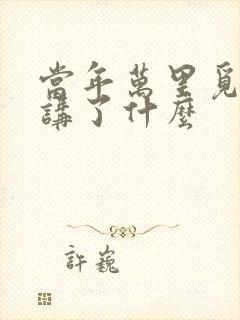 當年萬里覓
講了什麼
許巍